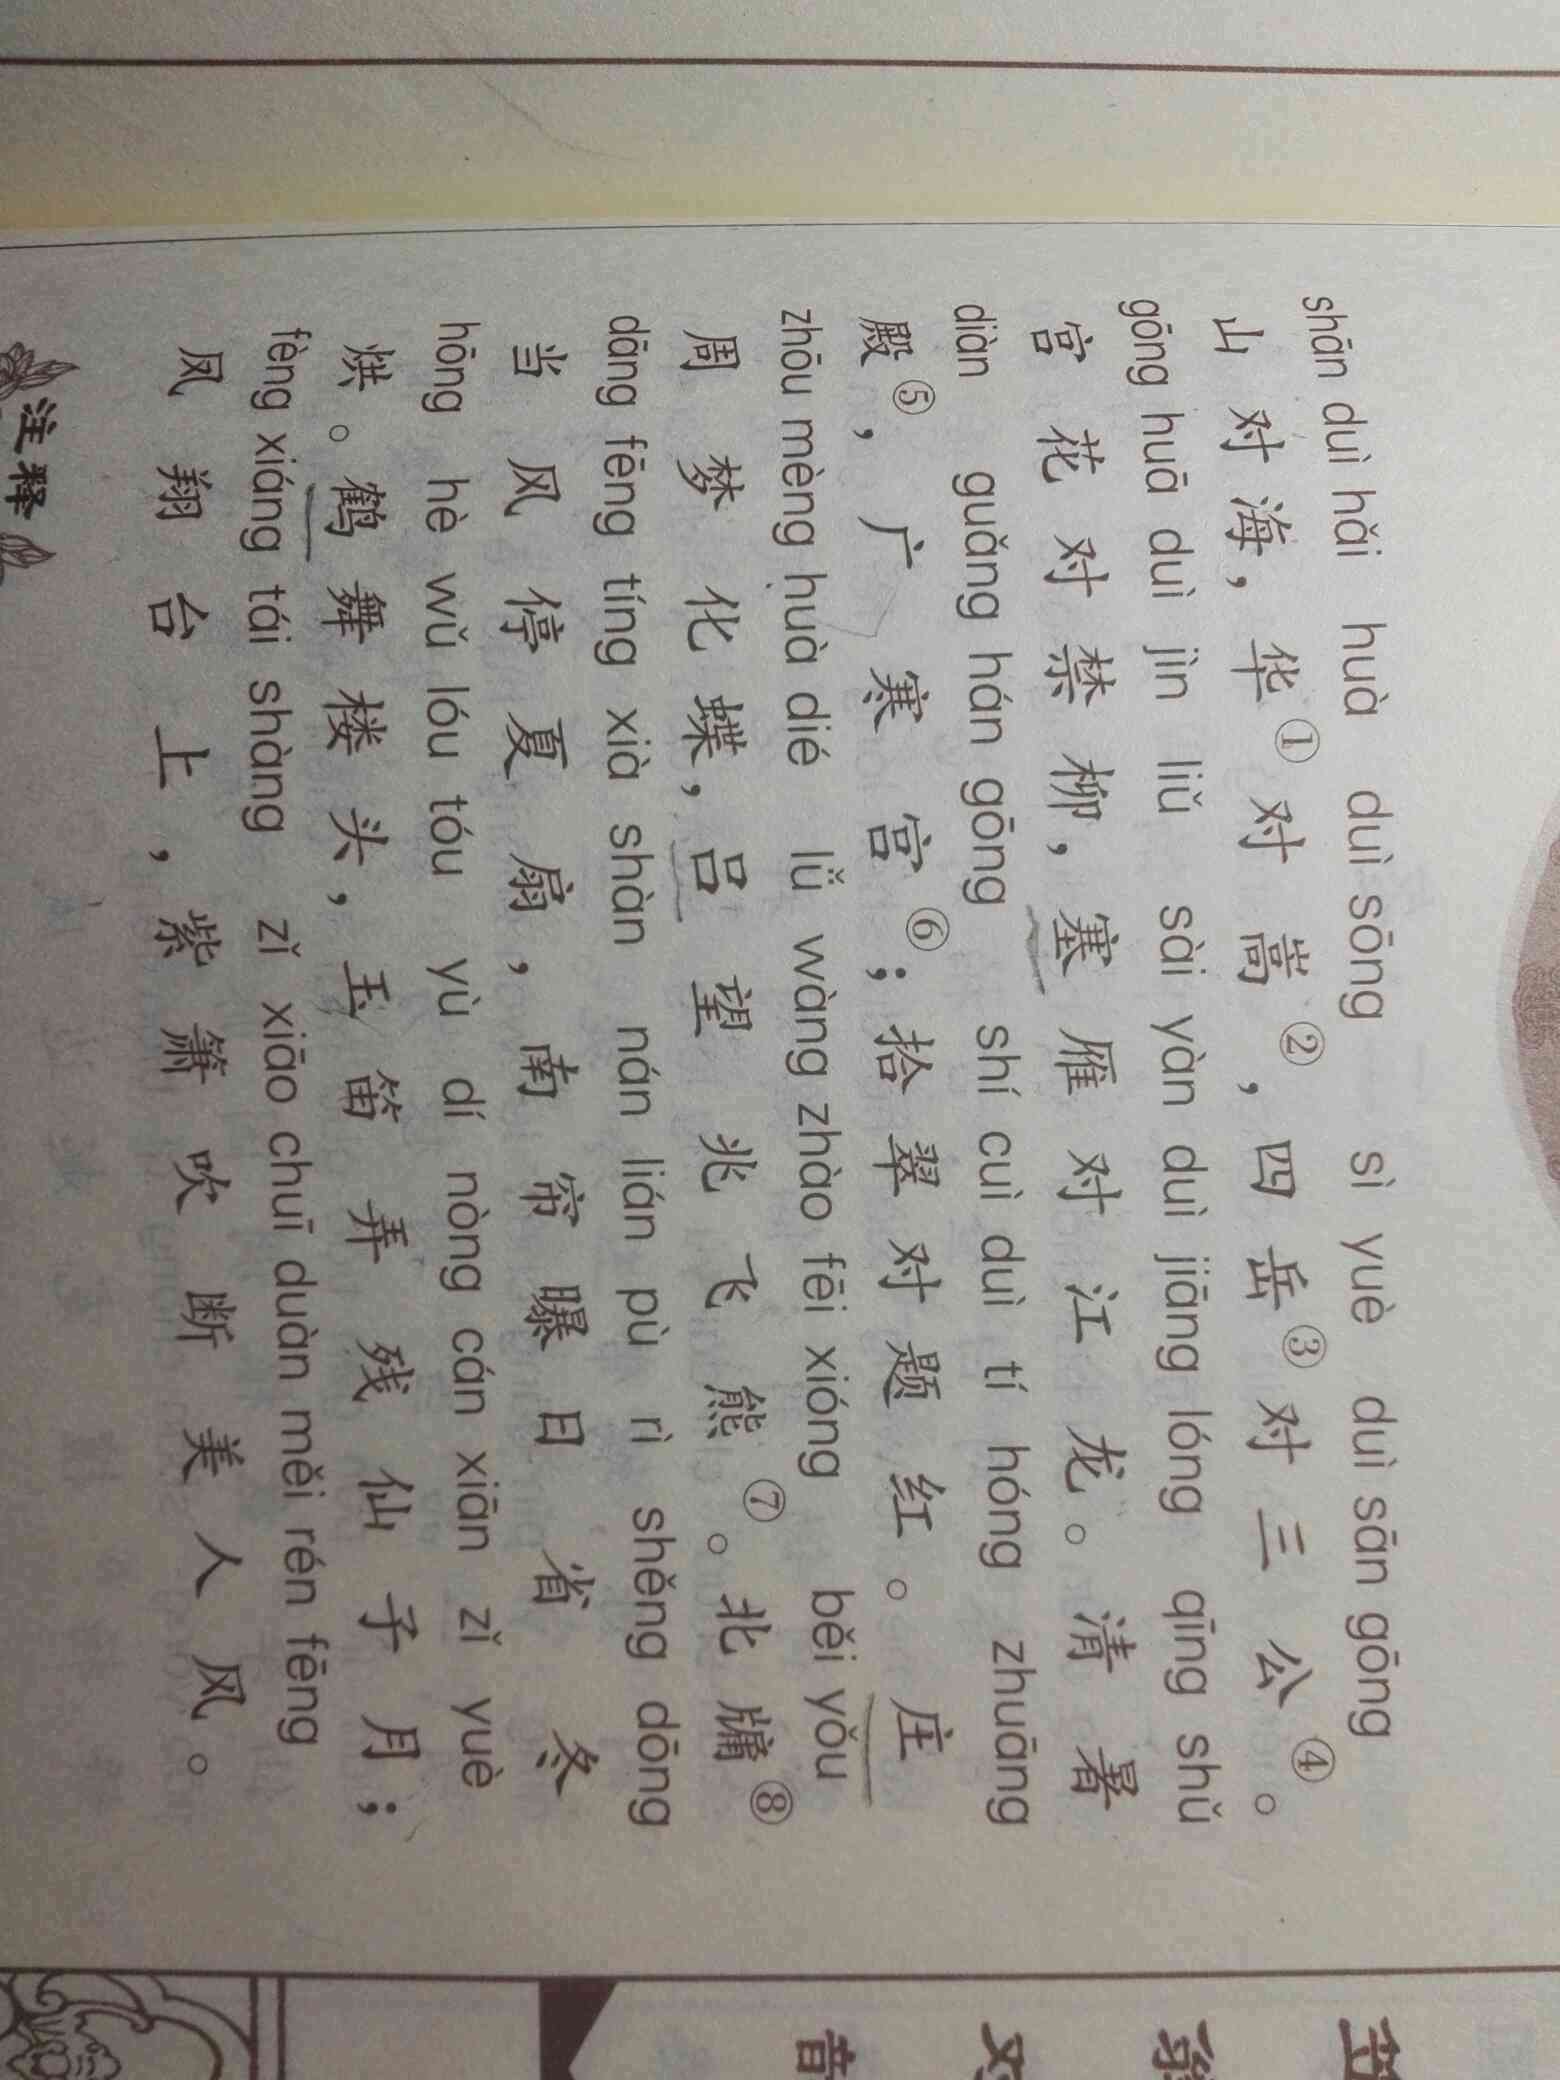 shān duì hǎi huà duì sōng sì yuè duì sān gōng
山对海，华①对嵩②，四岳③对三公④。
gōng huā duì jìn liǔ sài yàn duì jiāng lóng qīng shǔ
宫花对禁柳，塞雁对江龙。清暑
diàn guǎng hán gōng shí cuì duì tí hóng zhuāng
殿⑤，广寒宫⑥；拾翠对题红。庄
zhōu mèng huà dié lǚ wàng zhào fēi xióng běi yǒu
周梦化蝶，吕望兆飞熊⑦。北牖⑧
dāng fēng tíng xià shàn nán lián pù rì shěng dōng
当风停夏扇，南帘曝日省冬
hōng hè wǔ lóu tóu yù dí nòng cán xiān zǐ yuè
烘。鹤舞楼头，玉笛弄残仙子月；
fèng xiáng tái shàng zǐ xiāo chuī duàn měi rén fēng
凤翔台上，紫箫吹断美人风。
注释